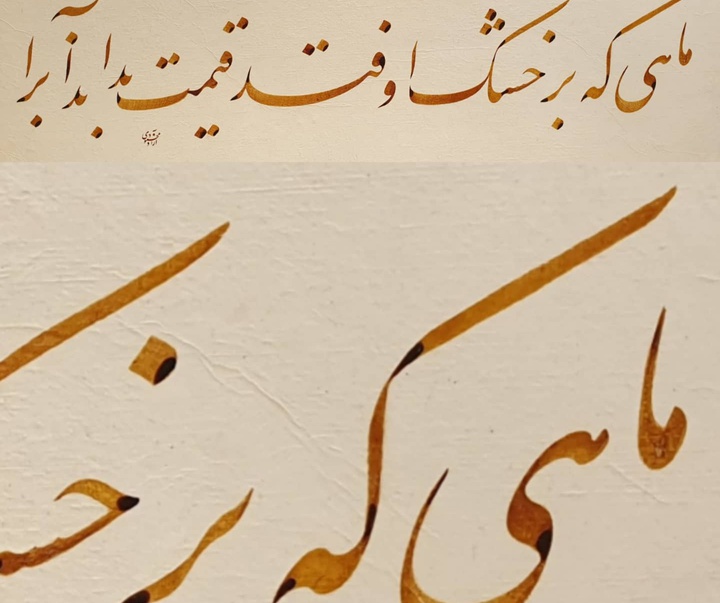 ماهی که بر خشک اوفتد قیمت بداند آب را
ماهی که بر خس